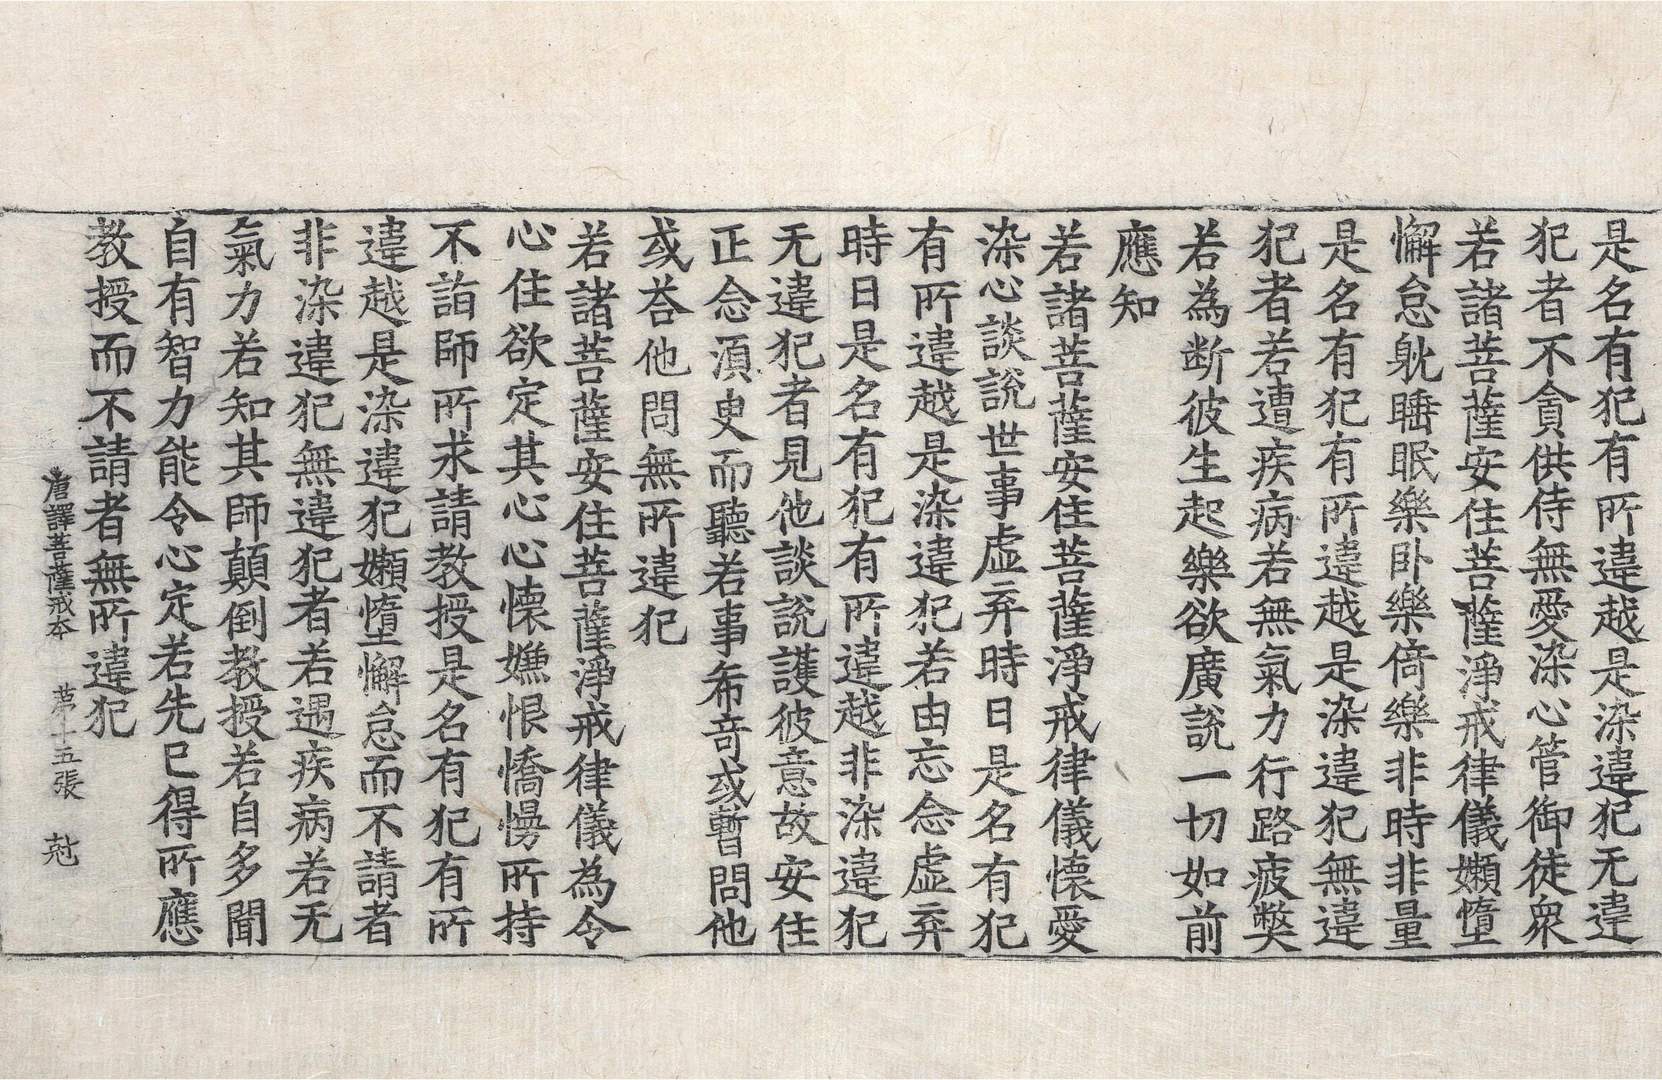 是名有犯有所違越是染違犯无違
犯者不貪供侍無愛染心管御徒衆
若諸菩薩安住菩薩淨戒律儀嬾惰
懈怠躭睡眠樂卧樂倚樂非時非量
是名有犯有所違越是染違犯無違
犯者若遭疾病若無氣力行路疲弊
若為断彼生起樂欲廣說一切如前
應知
若諸菩薩安住菩薩淨戒律儀懷愛
染心談説世事虛弃時日是名有犯
有所違越是染違犯若由忘念虛弃
時日是名有犯有所違越非染違犯
无違犯者見他談說護彼意故安住
正念湏臾而聽若事希竒或暫問他
或荅他問無所違犯
若諸菩薩安住菩薩淨戒律儀為令
心住欲定其心心懷嫌恨憍慢所持
不詣師所求請教授是名有犯有所
違越是染違犯嬾惰懈怠而不請者
非染違犯無違犯者若遇疾病若无
氣力若知其師顛倒教授若自多聞
自有智力能令心定若先已得所應
教授而不請者無所違犯
唐譯菩薩戒本 苐十五張 尅